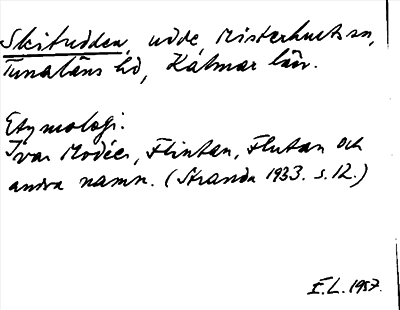 Skitudden, udde, Misterhults sn,
Tunaläns hd, Kalmar län.
Etymologi.
Ivar Modéer, Flintan, Flutan och
andra namn. (Stranda 1933. s. 12.)
E.L. 1957.